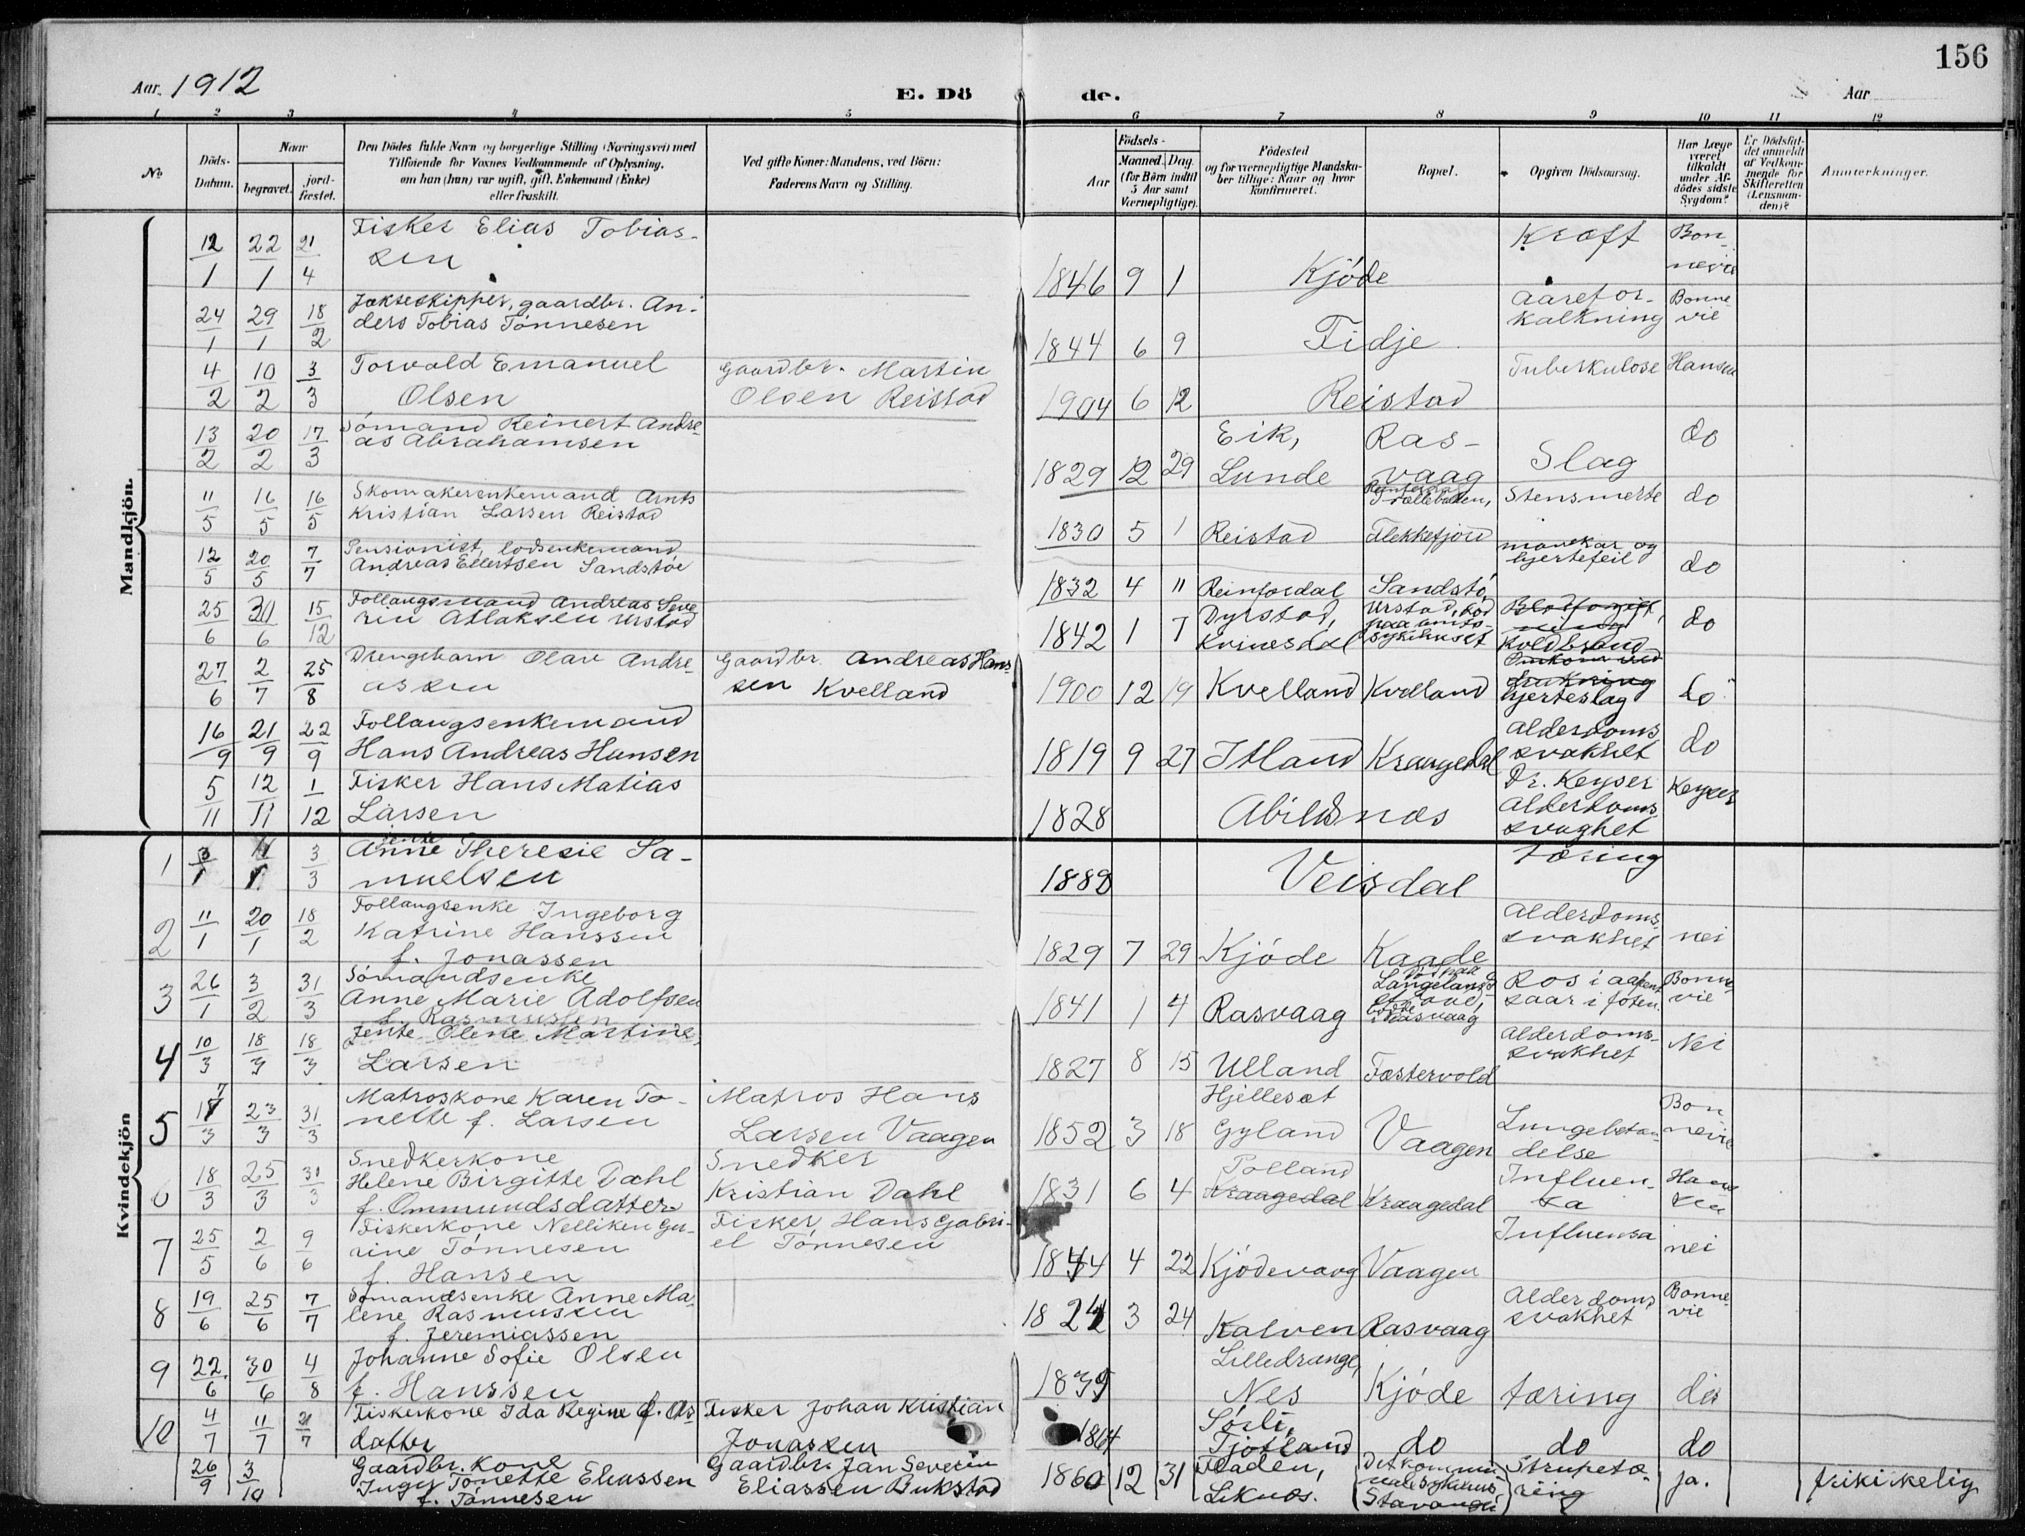 156
Aar. 1912
E. Dö de.
Aar
1 2 3 4 5 6 7 8 9 10 11 12
No
Döds-Datum.
Naar
begravet.
jord-fæstet.
Den Dödes fulde Navn og borgerlige Stilling (Næringsvei) med
Tilföiende for Voxnes Vedkommende af Oplysning,
om han (hun) var ugift, gift, Enkemand (Enke)
eller fraskilt.
Ved gifte Koner: Mandens, ved Börn:
Faderens Navn og Stilling.
Födsels-
Aar
Maaned. Dag.
(for Börn indtil
5 Aar samt
Værnepligtige).
Födested
og for værnepligtige Mandska-
ber tillige: Naar og hvor
Konfirmeret.
Bopæl.
Opgiven Dödsaarsag.
Har Læge
været
tilkaldt
under Af-
dödes sidste
Sygdom?
Er Dödsfal-
det anmeldt
af Vedkom-
mende for
Skifteretten
(Lensman-
den)?
Anmerkninger.
Mandkjön.
12/1 22/1 21/4 Fisker Elias Tobias-
sen 1846 9 1 Kjöde Kræft Bon-
nevie
24/1 29/1 18/2 Jakteskipper, gaardbr. An-
ders Tobias Tönnesen 1844 6 9 Fidje Aarefor-
kalkning Bonne-
vie
4/2 10/2 3/3 Torvald Emanuel
Olsen Gaardbr. Martin
Olsen Reistad 1904 6 12 Reistad Tuberkulose Hansen
13/2 20/2 17/3 Sömand Reinert Andre-
as Abrahamsen 1829 12 29 Eik,
Lunde Ras-
vaag Slag do
11/5 16/5 16/5 Skomakerenkemand Arnts
Kristian Larsen Reistad 1830 5 1 Reistad
Flekkefjord Stensmerte do
12/5 20/5 7/7 Pensionist, lodsenkemand
Andreas Ellertsen Sandstöe 1832 4 11 Reinfordal Sandstö
hjertefeil do
25/6 30/6 15/12 Follaugsmand Andreas Seve
rin Atlaksen Urstad 1842 1 7 Dyrstad,
Kvinesdal Urstad, död
paa amts-
sykehuset Blodforgift,
Koldbrand do
27/6 2/7 25/8 Drengebarn Olav Andre-
assen Gaardbr. Andreas Hans-
sen Kvelland 1900 12 19 Kvelland Kvelland Omkom ved
drukning
hjerteslag do
16/9 21/9 22/9 Follaugsenkemand
Hans Andreas Hansen 1819 9 27 Itland Kraagedal Alderdoms
svakhet do
5/11 12/11 1/12 Fisker Hans Matias
Larsen 1828 Abildsnæs Dr. Keyser
Alderdoms
svaghet Keyser
Kvindekjön
1 3/3 Jente
Anne Theresie Sa-
muelsen Veisdal Tæring
2 11/1 20/1 18/2 Follaugsenke Ingeborg
Katrine Hanssen
f. Jonassen 1829 7 29 Kjöde Kaade Alderdoms
svakhet nei
3 26/1 3/2 31/3 Sömandsenke
Anne Marie Adolfsen
f. Rasmussen 1841 1 4 Rasvaag
Rasvaag Ros i aapent
saar i foten. Bonne-
vie
4 10/3 18/3 18/3 Jente Olene Martine
Larsen 1827 8 15 Ulland Fæstervold Alderdoms-
svakhet Nei
5 17/3 23/3 31/3 Matroskone Karen To-
nette f. Larsen Matros Hans
Larsen Vaagen 1852 3 18 Hjelleset
Gyland Vaagen Lungebetæn-
delse Bon
nevie
6 18/3 25/3 31/3 Snedkerkone
Helene Birgitte Dahl
f. Ommundsdatter Snedker
Kristian Dahl 1831 6 4 Tolland
Kraagedal Kraagedal Influen-
sa Han-
sen
7 25/5 2/6 9/6 Fiskerkone Nelliken Gu-
rine Tönnesen
f. Hansen Fisker Hans Gabri-
el Tönnesen 1844 4 22 Kjödevaag Vaagen Influensa nei
8 19/6 25/6 7/7 Sömandsenke Anne Ma-
lene Rasmussen
f. Jeremiassen 3 24 Kalven Rasvaag Alderdoms
svakhet Bonne-
vie
9 22/6 30/6 4/8 Johanne Sofie Olsen
f. Hanssen Lilledrange,
Nes Kjöde tæring do
10 4/7 11/7 21/7 Fiskerkone Ida Regine f. Ols
datter Fisker Johan Kristian
Jonassen 1864 Sörli,
Tjotland do do do
26/9 3/10 Gaardbr. kone
Inger Tonette Eliassen
f. Tönnesen Gaardbr. Jan Severin
Eliassen Bukstad 1860 12 31 Fladen,
Liknes. Det kommu-
nale sykehus
Stavanger Strupetæ-
ring ja. frikirkelig